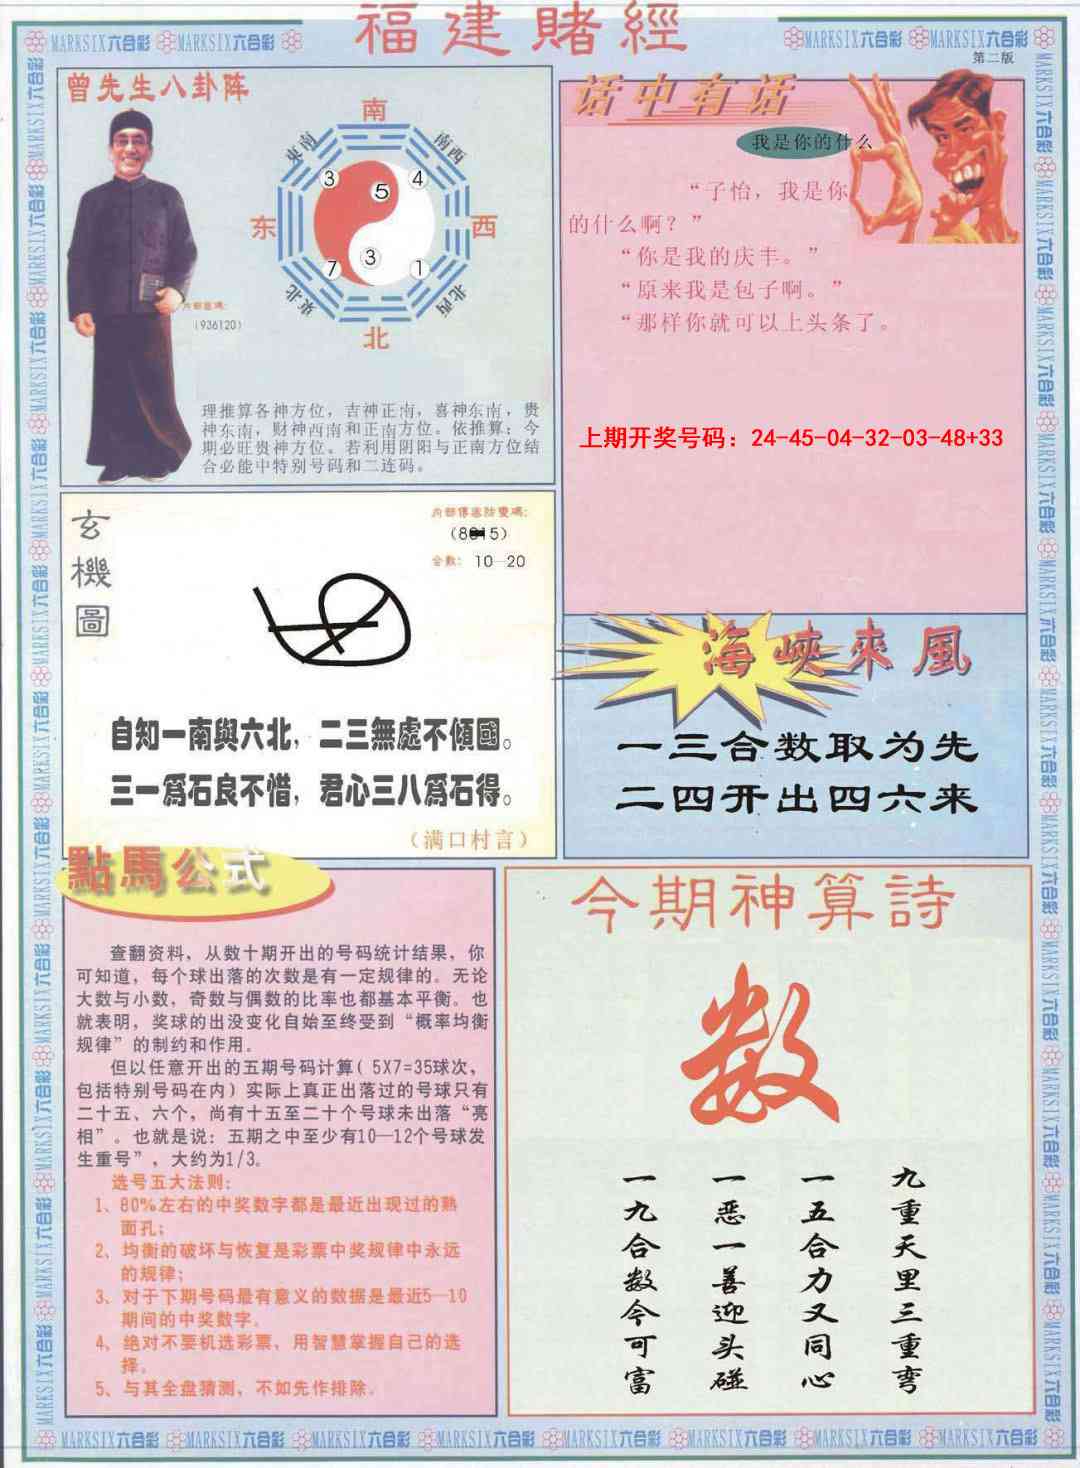 福建賭經
MARKSIX六合彩 MARKSIX六合彩
MARKSIX六合彩 MARKSIX六合彩
第二版
曾先生八卦阵
南
東南
南西
3
5
4
东
西
7
3
1
東北
北西
北
内部密碼:
(936120)
理推算各神方位，吉神正南，喜神东南，贵
神东南，财神西南和正南方位。依推算：今
期必旺贵神方位。若利用阴阳与正南方位结
合必能中特别号码和二连码。
话中有话
我是你的什么
“子怡，我是你
的什么啊？”
“你是我的庆丰。”
“原来我是包子啊。”
“那样你就可以上头条了。
上期开奖号码：24-45-04-32-03-48+33
玄機圖
内部傳密防雙碼:
合數: 10—20
自知一南與六北，二三無處不傾國。
三一爲石良不惜，君心三八爲石得。
（满口村言）
海峽來風
一三合数取为先
二四开出四六来
點馬公式
查翻资料，从数十期开出的号码统计结果，你
可知道，每个球出落的次数是有一定规律的。无论
大数与小数，奇数与偶数的比率也都基本平衡。也
就表明，奖球的出没变化自始至终受到“概率均衡
规律”的制约和作用。
但以任意开出的五期号码计算( 5X7=35球次，
包括特别号码在内）实际上真正出落过的号球只有
二十五、六个，尚有十五至二十个号球未出落“亮
相”。也就是说：五期之中至少有10—12个号球发
生重号”，大约为1/3。
选号五大法则:
1、80%左右的中奖数字都是最近出现过的熟
面孔；
2、均衡的破坏与恢复是彩票中奖规律中永远
的规律；
3、对于下期号码最有意义的数据是最近5—10
期间的中奖数字。
4、绝对不要机选彩票，用智慧掌握自己的选
择。
5、与其全盘猜测，不如先作排除。
今期神算詩
数
九重天里三重弯
一五合力又同心
一恶一善迎头碰
一九合数今可富
MARKSIX六合彩 MARKSIX六合彩 MARKSIX六合彩 MARKSIX六合彩 MARKSIX六合彩 MARKSIX六合彩 MARKSIX六合彩 MARKSIX六合彩